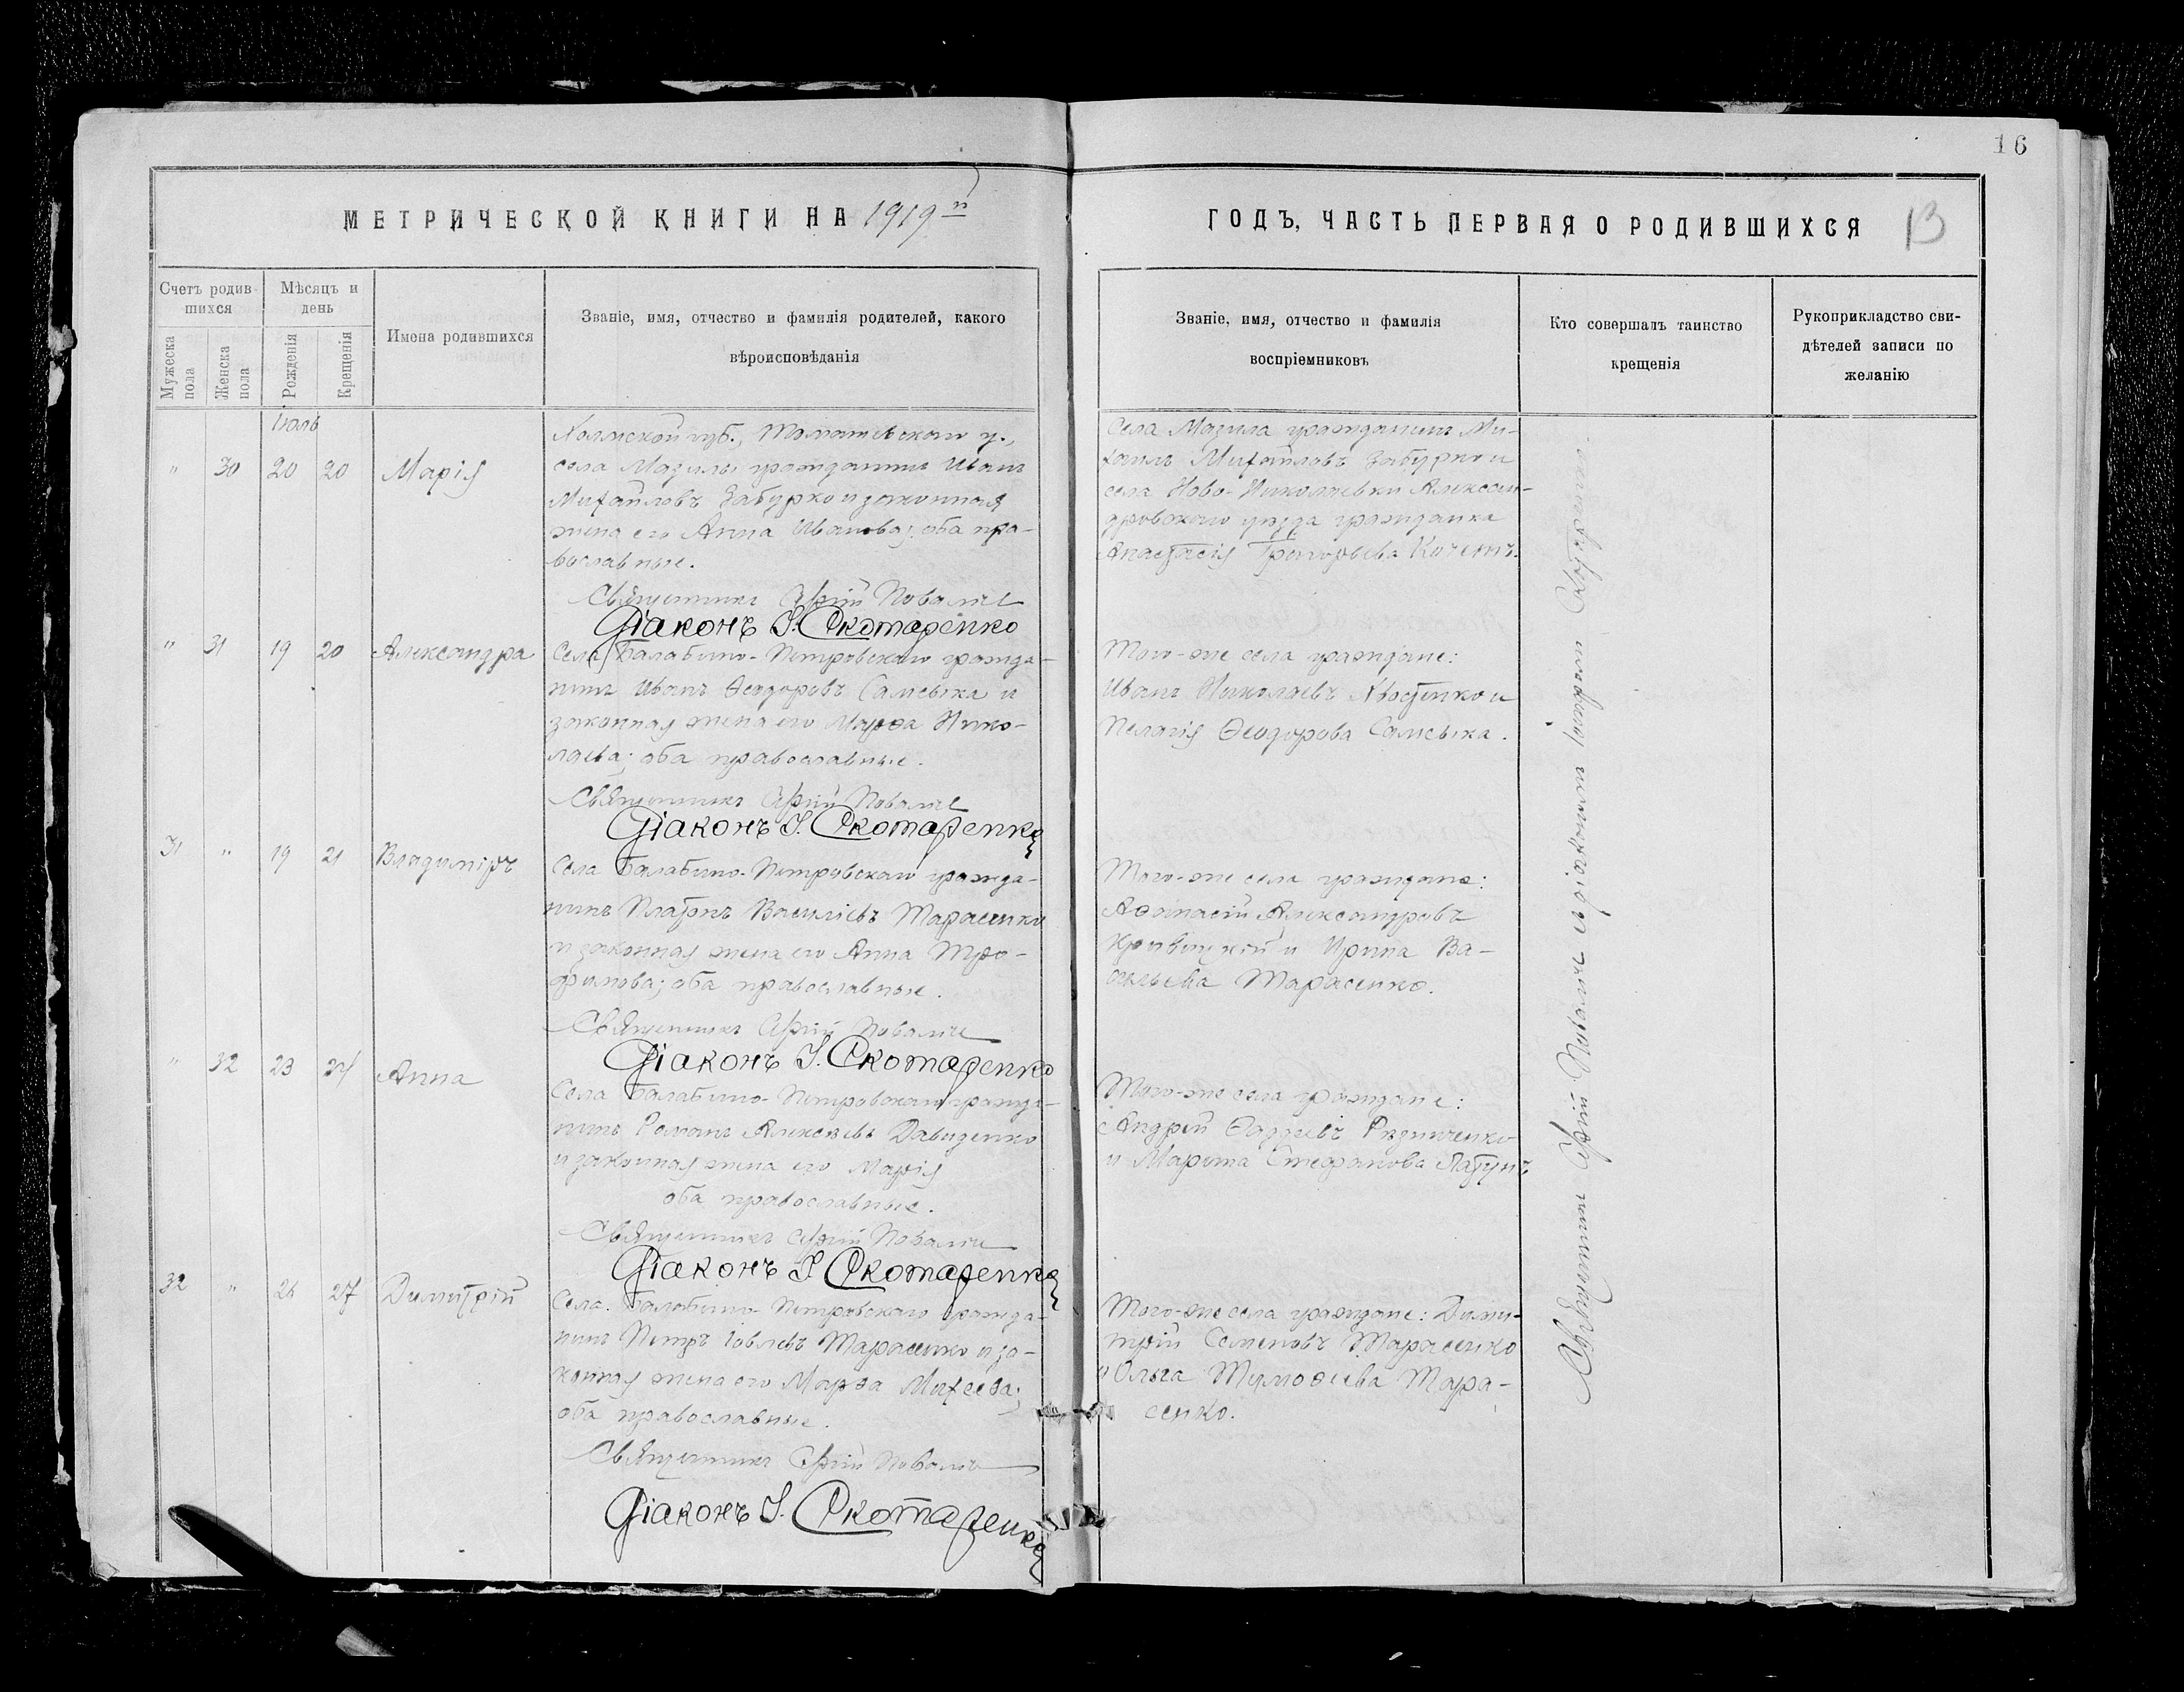 16
МЕТРИЧЕСКОЙ КНИГИ НА 1919й
ГОДЪ, ЧАСТЬ ПЕРВАЯ О РОДИВШИХСЯ
13
Счетъ родив-
шихся
Мужеска пола
Женска пола
Мѣсяцъ и
день
Рожденія
Крещенія
Имена родившихся
Званіе, имя, отчество и фамилія родителей, какого
вѣроисповѣданія
Званіе, имя, отчество и фамилія
воспріемниковъ
Кто совершалъ таинство
крещенія
Рукоприкладство сви-
дѣтелей записи по
желанію
Іюль
" 30 20 20 Марія
Холмской губ., Томашевскаго у.,
села Мазилы гражданинъ Иванъ
Михаиловъ Забурко и законная
жена его Анна Иванова; оба пра-
вославные.
Священникъ Повалие
Діаконъ І. Скотаренко
Села Мазила гражданинъ Ми-
хаилъ Михаиловъ Забурко и
села Ново-Николаевки Алексан-
дровскаго уѣзда гражданка
Анастасія Григорьева Кочетъ.
" 31 19 20 Александра
Села Балабино-Петровскаго гражда-
нинъ Иванъ Ѳеодоровъ Самсыка и
законная жена его Марѳа Нико-
лаева; оба православные.
Священникъ Повалие
Діаконъ І. Скотаренко
Того-же села граждане:
Иванъ Николаевъ Хвостенко и
Пелагія Ѳеодорова Самсыка.
31 " 19 21 Владиміръ
Села Балабино-Петровскаго гражда-
нинъ Платонъ Василіевъ Тарасенко
и законная жена его Анна Тро-
фимова; оба православные.
Священникъ Повалие
Діаконъ І. Скотаренко
Того-же села граждане:
Аѳанасій Александровъ
Кривицкій и Ирина Ва-
сильева Тарасенко.
" 32 23 24 Анна
Села Балабино-Петровскаго гражда-
нинъ Романъ Алексѣевъ Давиденко
и законная жена его Марія
оба православные.
Священникъ Повалие
Діаконъ І. Скотаренко
Того-же села граждане:
Андрей Ѳаддеевъ Рѣзниченко
и Марина Стефанова Лагунъ
32 " 26 27 Димитрій
Села Балабино-Петровскаго гражда-
нинъ Петръ Іовлевъ Тарасенко и за-
конная жена его Марѳа Михеева;
оба православные.
Священникъ Повалие
Діаконъ І. Скотаренко
Того-же села граждане: Дими-
трій Семеновъ Тарасенко
и Ольга Тимоѳіева Тара-
сенко.
Священникъ Повалие съ діакономъ Іоанномъ Скотаренко.